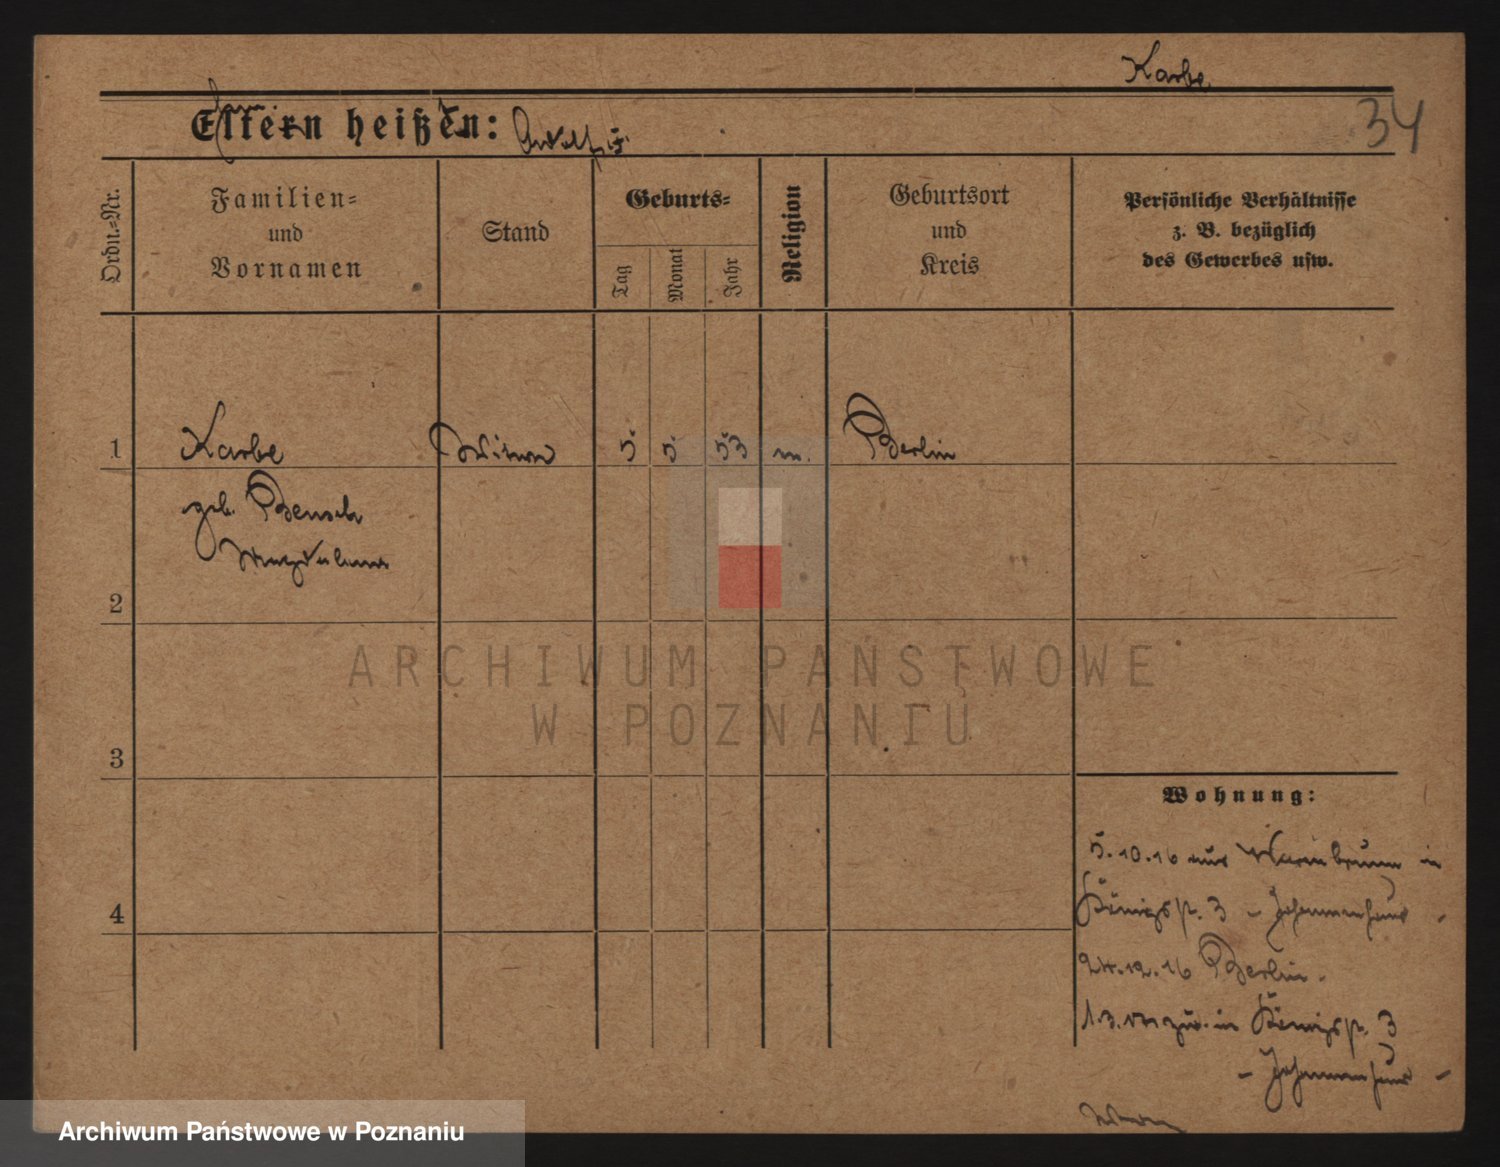 Karbe
34
Eltern heißen:
Ordn.-Nr.
Familien-
und
Vornamen
Stand
Geburts-
Tag
Monat
Jahr
Religion
Geburtsort
und
Kreis
Persönliche Verhältnisse
z. B. bezüglich
des Gewerbes usw.
1 Karbe Witwe 5 5 53 Berlin
geb. Bensch
Magdalena
2
3
4
Wohnung:
5.10.16 aus Warmbrunn in
Königspl. 3 - Johannenhaus -
24.12.16 Berlin.
in Königspl. 3
- Johannenhaus -
ARCHIWUM PAŃSTWOWE
W POZNANIU
Archiwum Państwowe w Poznaniu